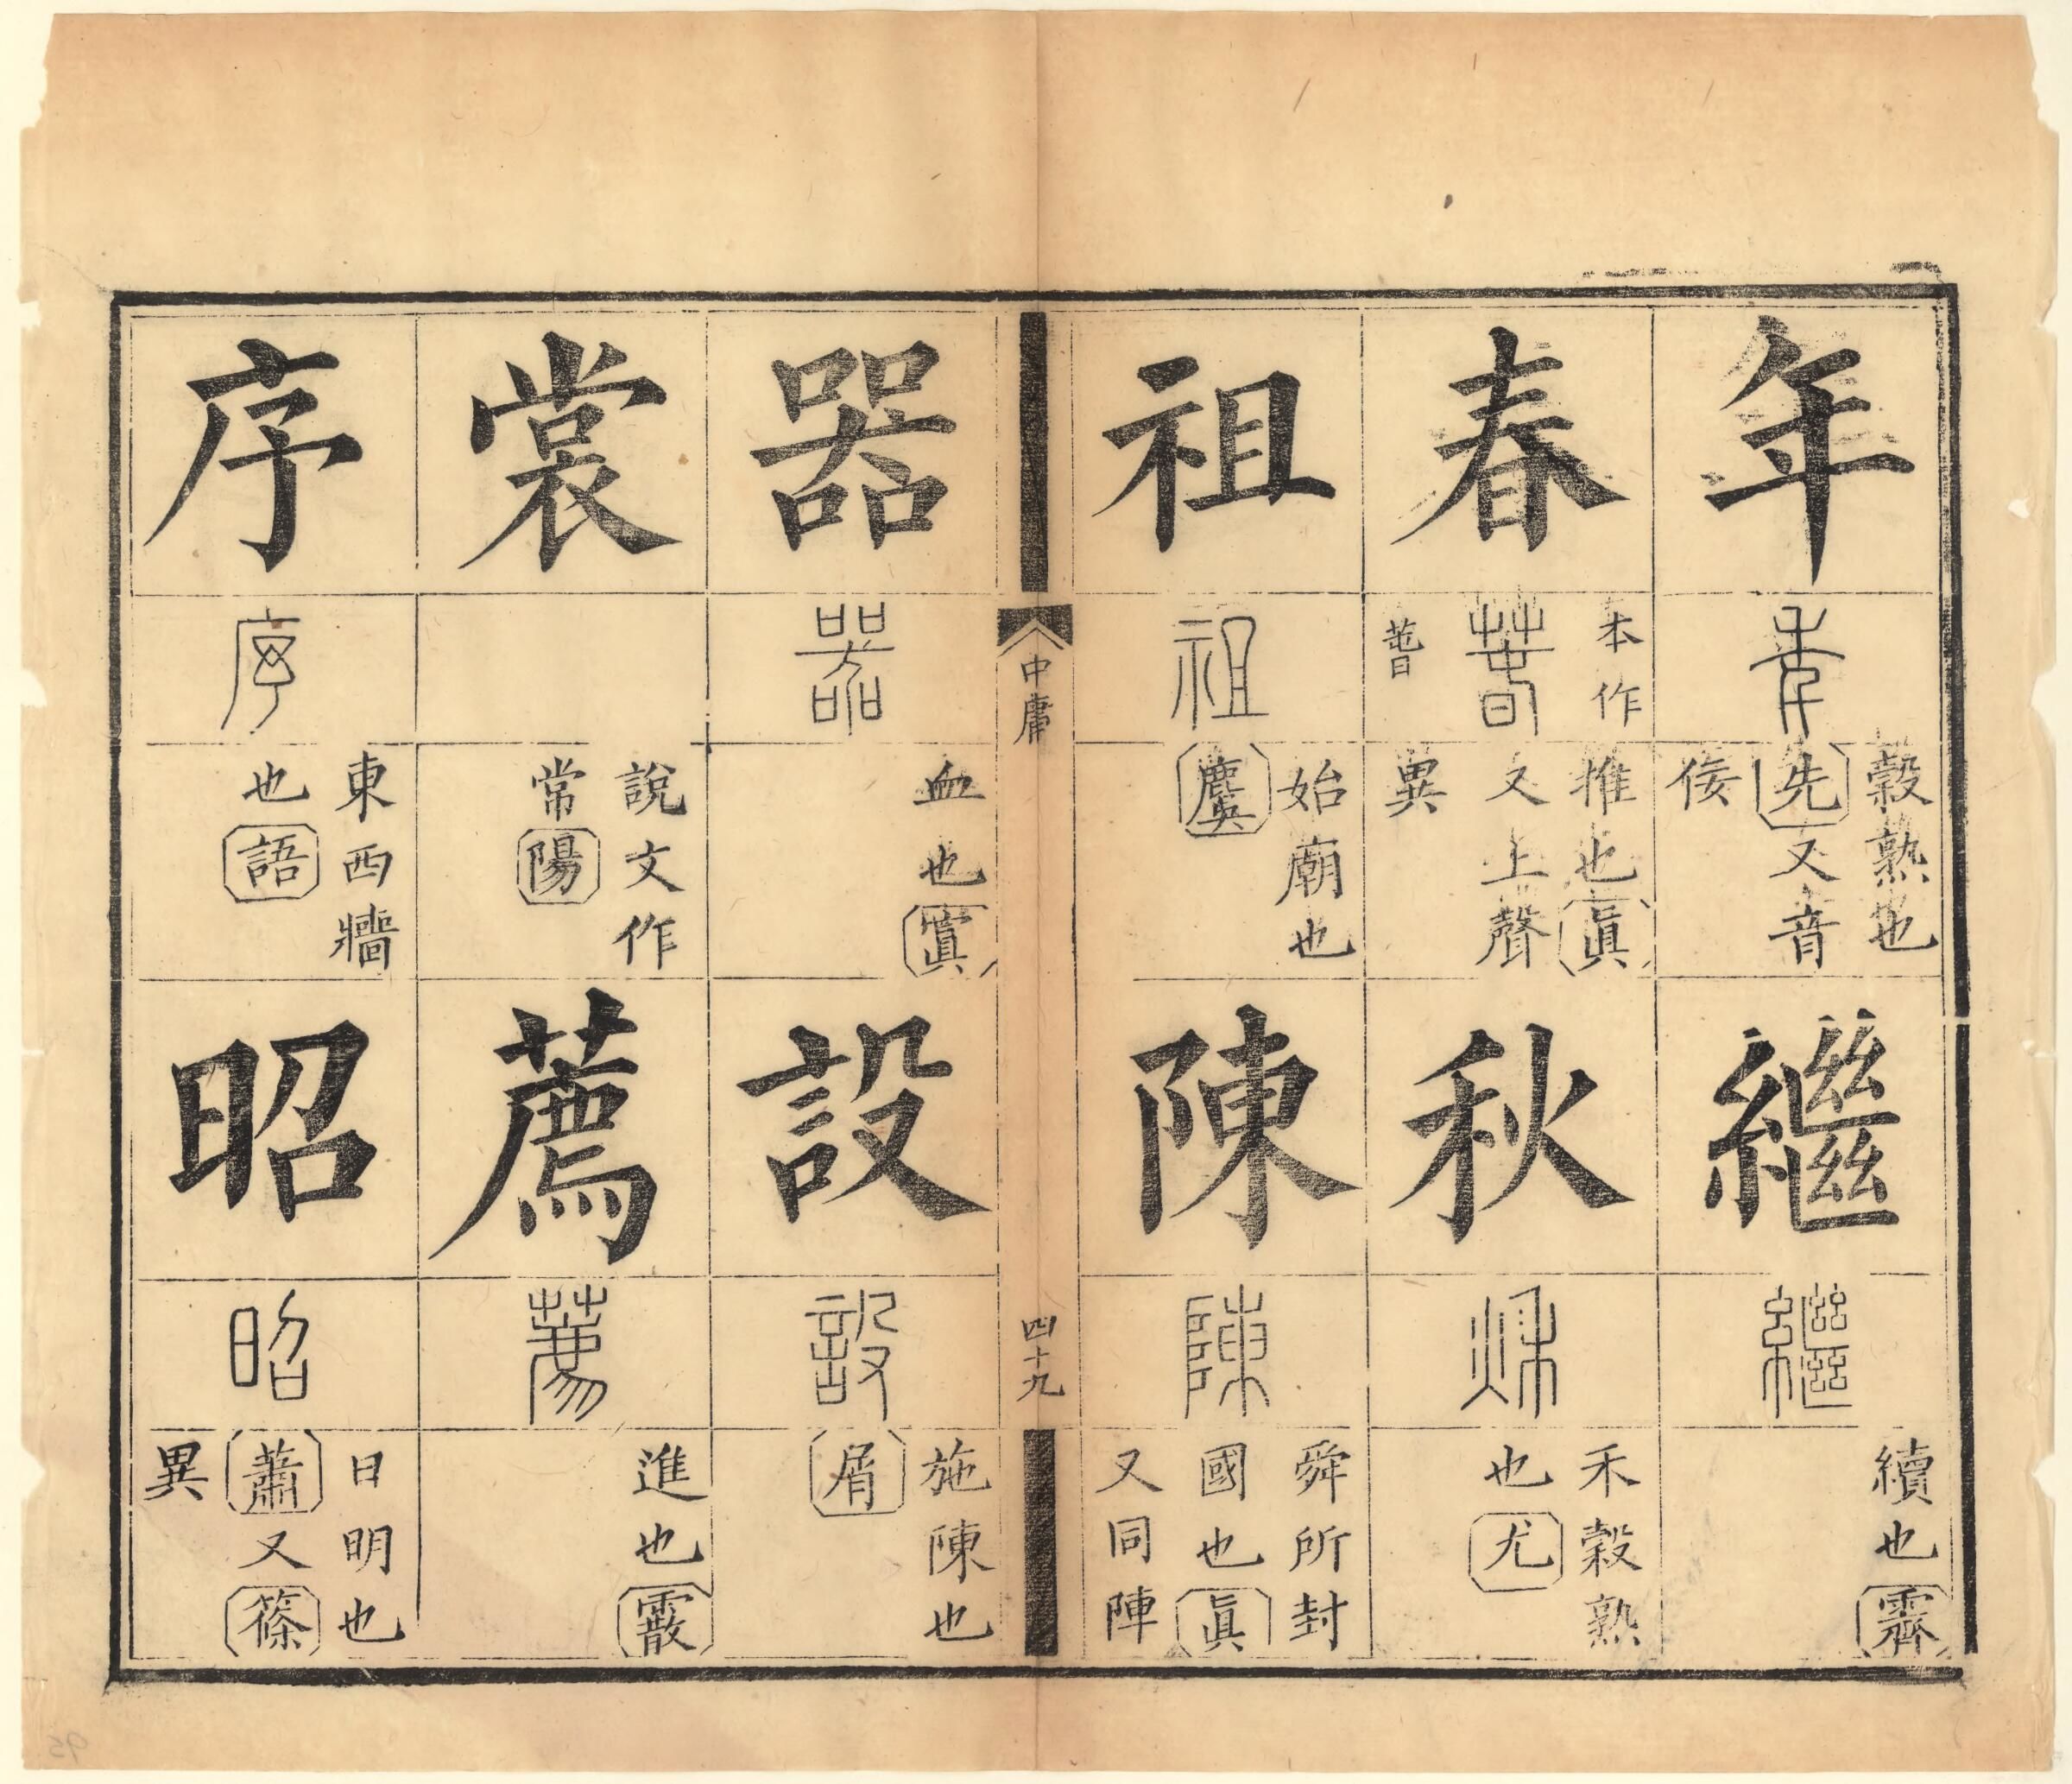 年
秊
穀熟也
先又音
佞
繼
繼
續也霽
春
本作
萅
萅
推也眞
又上聲
異
秋
秌
禾穀熟
也尤
祖
祖
始廟也
麌
陳
陳
舜所封
國也眞
又同陣
中庸
四十九
器
器
皿也寘
設
設
施陳也
屑
裳
說文作
常陽
薦
薦
進也霰
序
序
東西牆
也語
昭
昭
日明也
蕭又篠
異